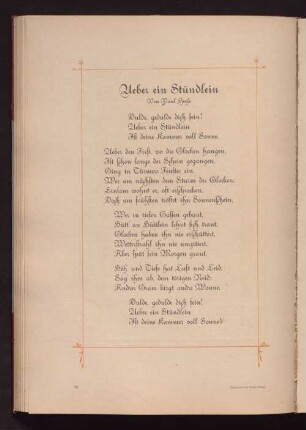 Ueber ein Stündlein
Von Paul Heyse
Dulde, gedulde dich fein!
Ueber ein Stündlein
Ist deine Kammer voll Sonne.
Ueber den First, wo die Glocken hangen,
Ist schon lange der Schein gegangen,
Ging in Türmers Fenster ein.
Wer am nächsten dem Sturm der Glocken,
Einsam wohnt er, oft erschrocken,
Doch am frühsten tröstet ihn Sonnenschein.
Wer in tiefen Gassen gebaut,
Hütt' an Hüttlein lehnt sich traut,
Glocken haben ihn nie erschüttert,
Wetterstrahl ihn nie umzittert,
Aber spät sein Morgen graut.
Höh' und Tiefe hat Lust und Leid.
Sag' ihm ab, dem törigen Neid:
Andrer Gram birgt andre Wonne.
Dulde, gedulde dich fein!
Ueber ein Stündlein
Ist deine Kammer voll Sonne!